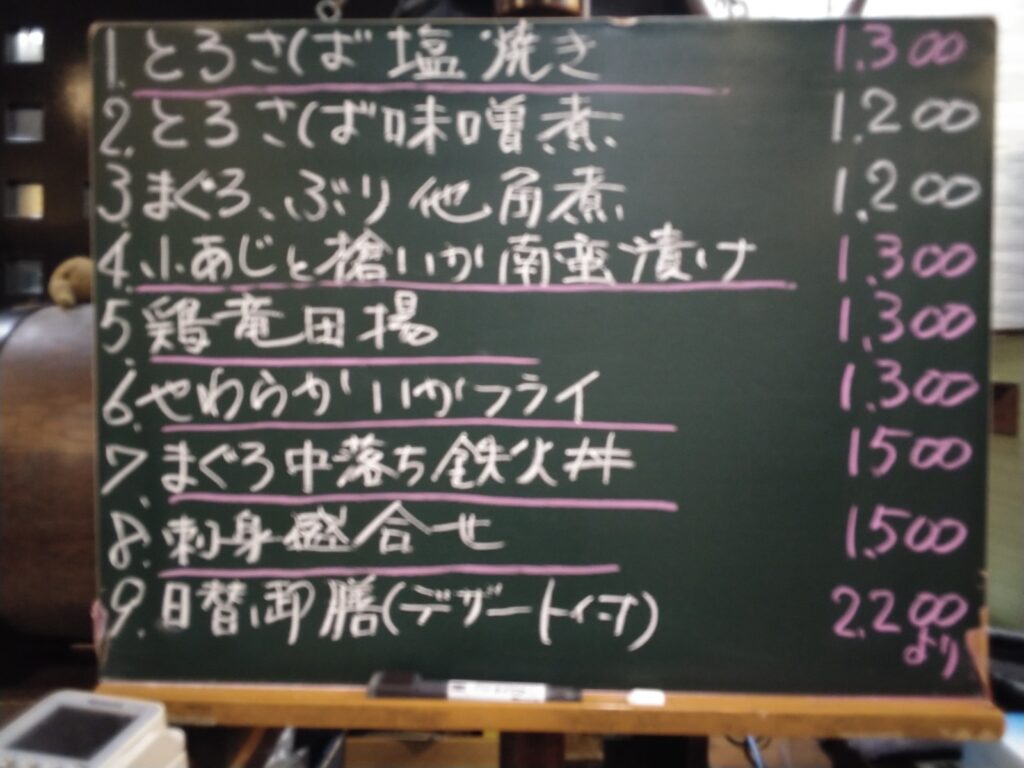 1. とろさば 塩焼き 1.300
2. とろさば味噌煮 1.200
3. まぐろ、ぶり他角煮 1.200
4. 小あじと槍いか南蛮漬け 1.300
5. 鶏竜田揚 1.300
6. やわらかいかフライ 1.300
7. まぐろ中落ち鉄火丼 1500
8. 刺身盛合せ 1.500
9. 日替御膳(デザート付) 2.200
より